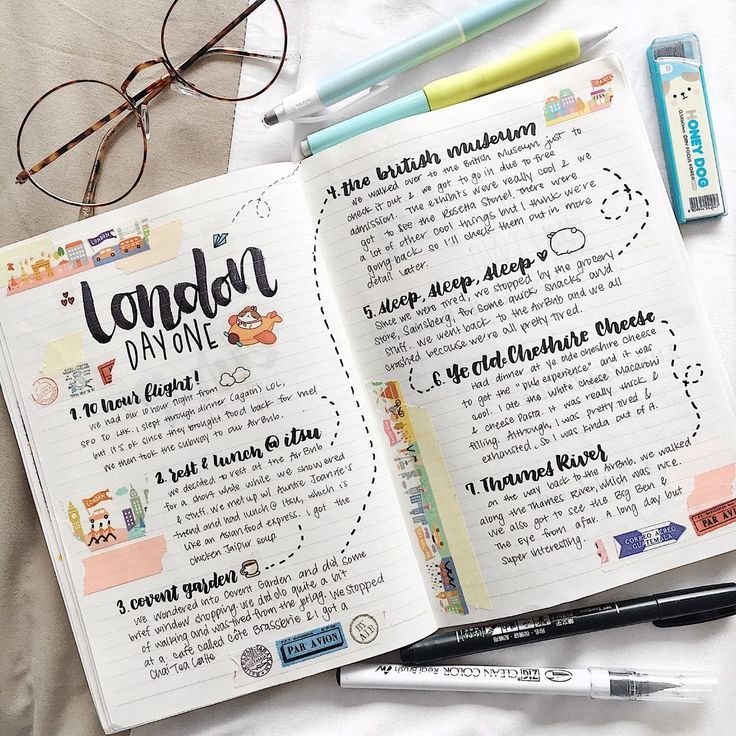 London
DAY ONE
1. 10 hour flight!
We had our 10 hour flight from
SFO to LHR. I slept through dinner (again) LOL,
but it's ok since they brought food back for me!
We then took the subway to our AirBnb.
2. rest & lunch @ itsu
We decided to rest at the AirBnb
for a short while while we showered
& stuff. We met up w/ Auntie Joannie's
friend and had lunch @ Itsu, which is
like an Asian food express. I got the
chicken Jaipur soup.
3. covent garden
We wondered into Covent Garden and did some
brief window shopping. We did do quite a bit
of walking and was tired from the jetlag. We stopped
at a cafe called Côte Brasserie & I got a
Chai Tea Latte
PAR AVION
4. the british museum
We walked over to the British Museum just to
check it out & we got to go in due to free
admission. The exhibits were really cool & we
got to see the Rosetta Stone! There were
a lot of other cool things but I think we're
going back so I'll check them out in more
detail later.
5. sleep, sleep, sleep
Since we were tired, we stopped by the grocery
store, Sainsberg, for some quick snacks and
stuff. We went back to the AirBnb and we all
crashed because we're all pretty tired.
6. Ye old Cheshire Cheese
Had dinner at ye olde cheshire cheese
to get the "pub experience" and it was
cool. I ate the White Cheese Macaroni
& cheese pasta. It was really thick &
filling. Although, I was pretty tired &
exhausted. So I was kinda out of it.
7. Thames River
On the way back to the AirBnb, we walked
along the Thames River, which was nice.
We also got to see the Big Ben &
The Eye from afar. A long day but
super interesting.
CORREO AEREO
GUATEMALA
PAR AVION
B
HONEY DOG
ZIG CLEAN COLOR Real Brush
LONDON
LONDON